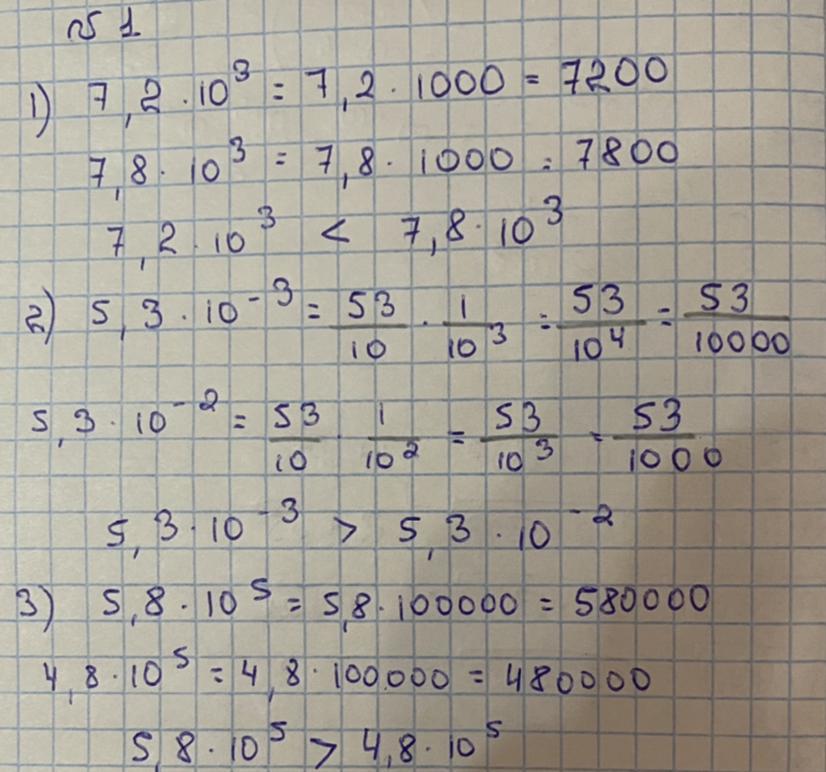 № 1
1) 7,2 · 10³ = 7,2 · 1000 = 7200
7,8 · 10³ = 7,8 · 1000 = 7800
7,2 · 10³ < 7,8 · 10³
2) 5,3 · 10⁻³ = 53/10 · 1/10³ = 53/10⁴ = 53/10000
5,3 · 10⁻² = 53/10 · 1/10² = 53/10³ = 53/1000
5,3 · 10⁻³ > 5,3 · 10⁻²
3) 5,8 · 10⁵ = 5,8 · 100000 = 580000
4,8 · 10⁵ = 4,8 · 100000 = 480000
5,8 · 10⁵ > 4,8 · 10⁵